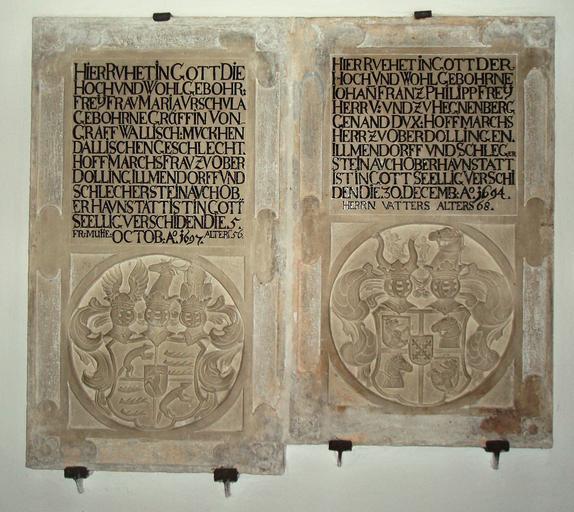 HIERRVHET IN GOTT DIE
HOCH VND WOHL GEBOHR:
FREY FRAV MARIA VRSCHVLA
GEBOHRNE GRÄFFIN VON
GRAFF WALLISCH: MVCKHEN
DALLISCHEN GESCHLECHT.
HOFFMARCHS FRAV ZV OBER
DOLLING ILLMENDORFF VND
SCHLECHERSTEIN AVCH OB
ERHAVNSTATT IST IN GOTT
SEELLIG VERSCHIDEN DIE. 5.
OCTOB: Aº. 1697. ALTERS 56.
HIER RVEHET IN GOTT DER
HOCH VND WOHL GEBOHRNE
IOHAÑ FRANZ PHILIPP FREY
HERR V: VND ZV HEGNENBERG
GENAND DVX: HOFFMARCHS
HERR ZV OBERDOLLING. EN.
ILLMENDORFF VND SCHLEGER
STEIN AVCH OBERHAVNSTATT
IST IN GOTT SEELLIG VERSCHI
DEN DIE. 30. DECEMB: Aº. 1694.
HERRN VATTERS ALTERS 68.